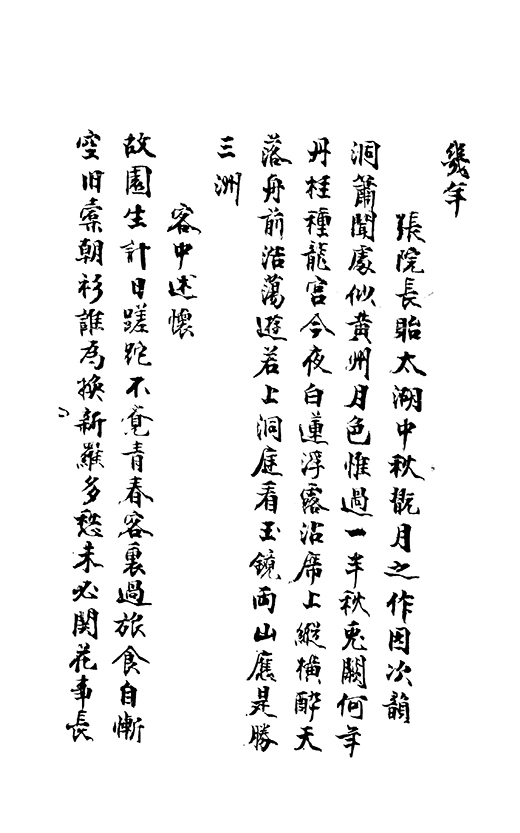 幾年
張院長貽太湖中秋翫月之作因次韻
洞簫聞處似黃州月色惟過一半秋兎闕何年
丹桂種龍宮今夜白蓮浮露沾席上縱橫醉天
落舟前浩蕩遊若上洞庭看玉鏡兩山應是勝
三洲
客中述懷
故園生計日蹉跎不覺青春客裏過旅食自慚
空旧橐朝衫誰為換新羅多愁未必関花事長